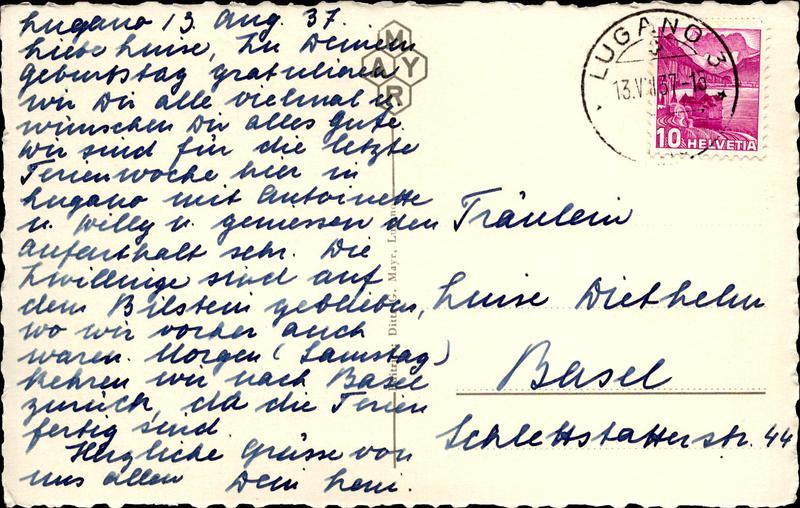 Lugano 13. Aug. 37.
Liebe Luise, Zu Deinem
geburtstag gratulieren
wir Dir alle vielmal u.
wünschen Dir alles gute
wir sind für die letzte
Ferienwoche hier in
Lugano mit Antoinette
u. Willy u. geniessen den
Aufenthalt sehr. Die
Zwillinge sind auf
dem Bilstein geblieben,
wo wir vorher auch
waren. Morgen (Samstag)
kehren wir nach Basel
zurück, da die Ferien
fertig sind.
Herzliche Grüsse von
uns allen Dein
MAYR
Mayr,
LUGANO 3
13.VIII37
10 HELVETIA
Fräulein
Luise Diethelm
Basel
Schlettstatterstr. 44